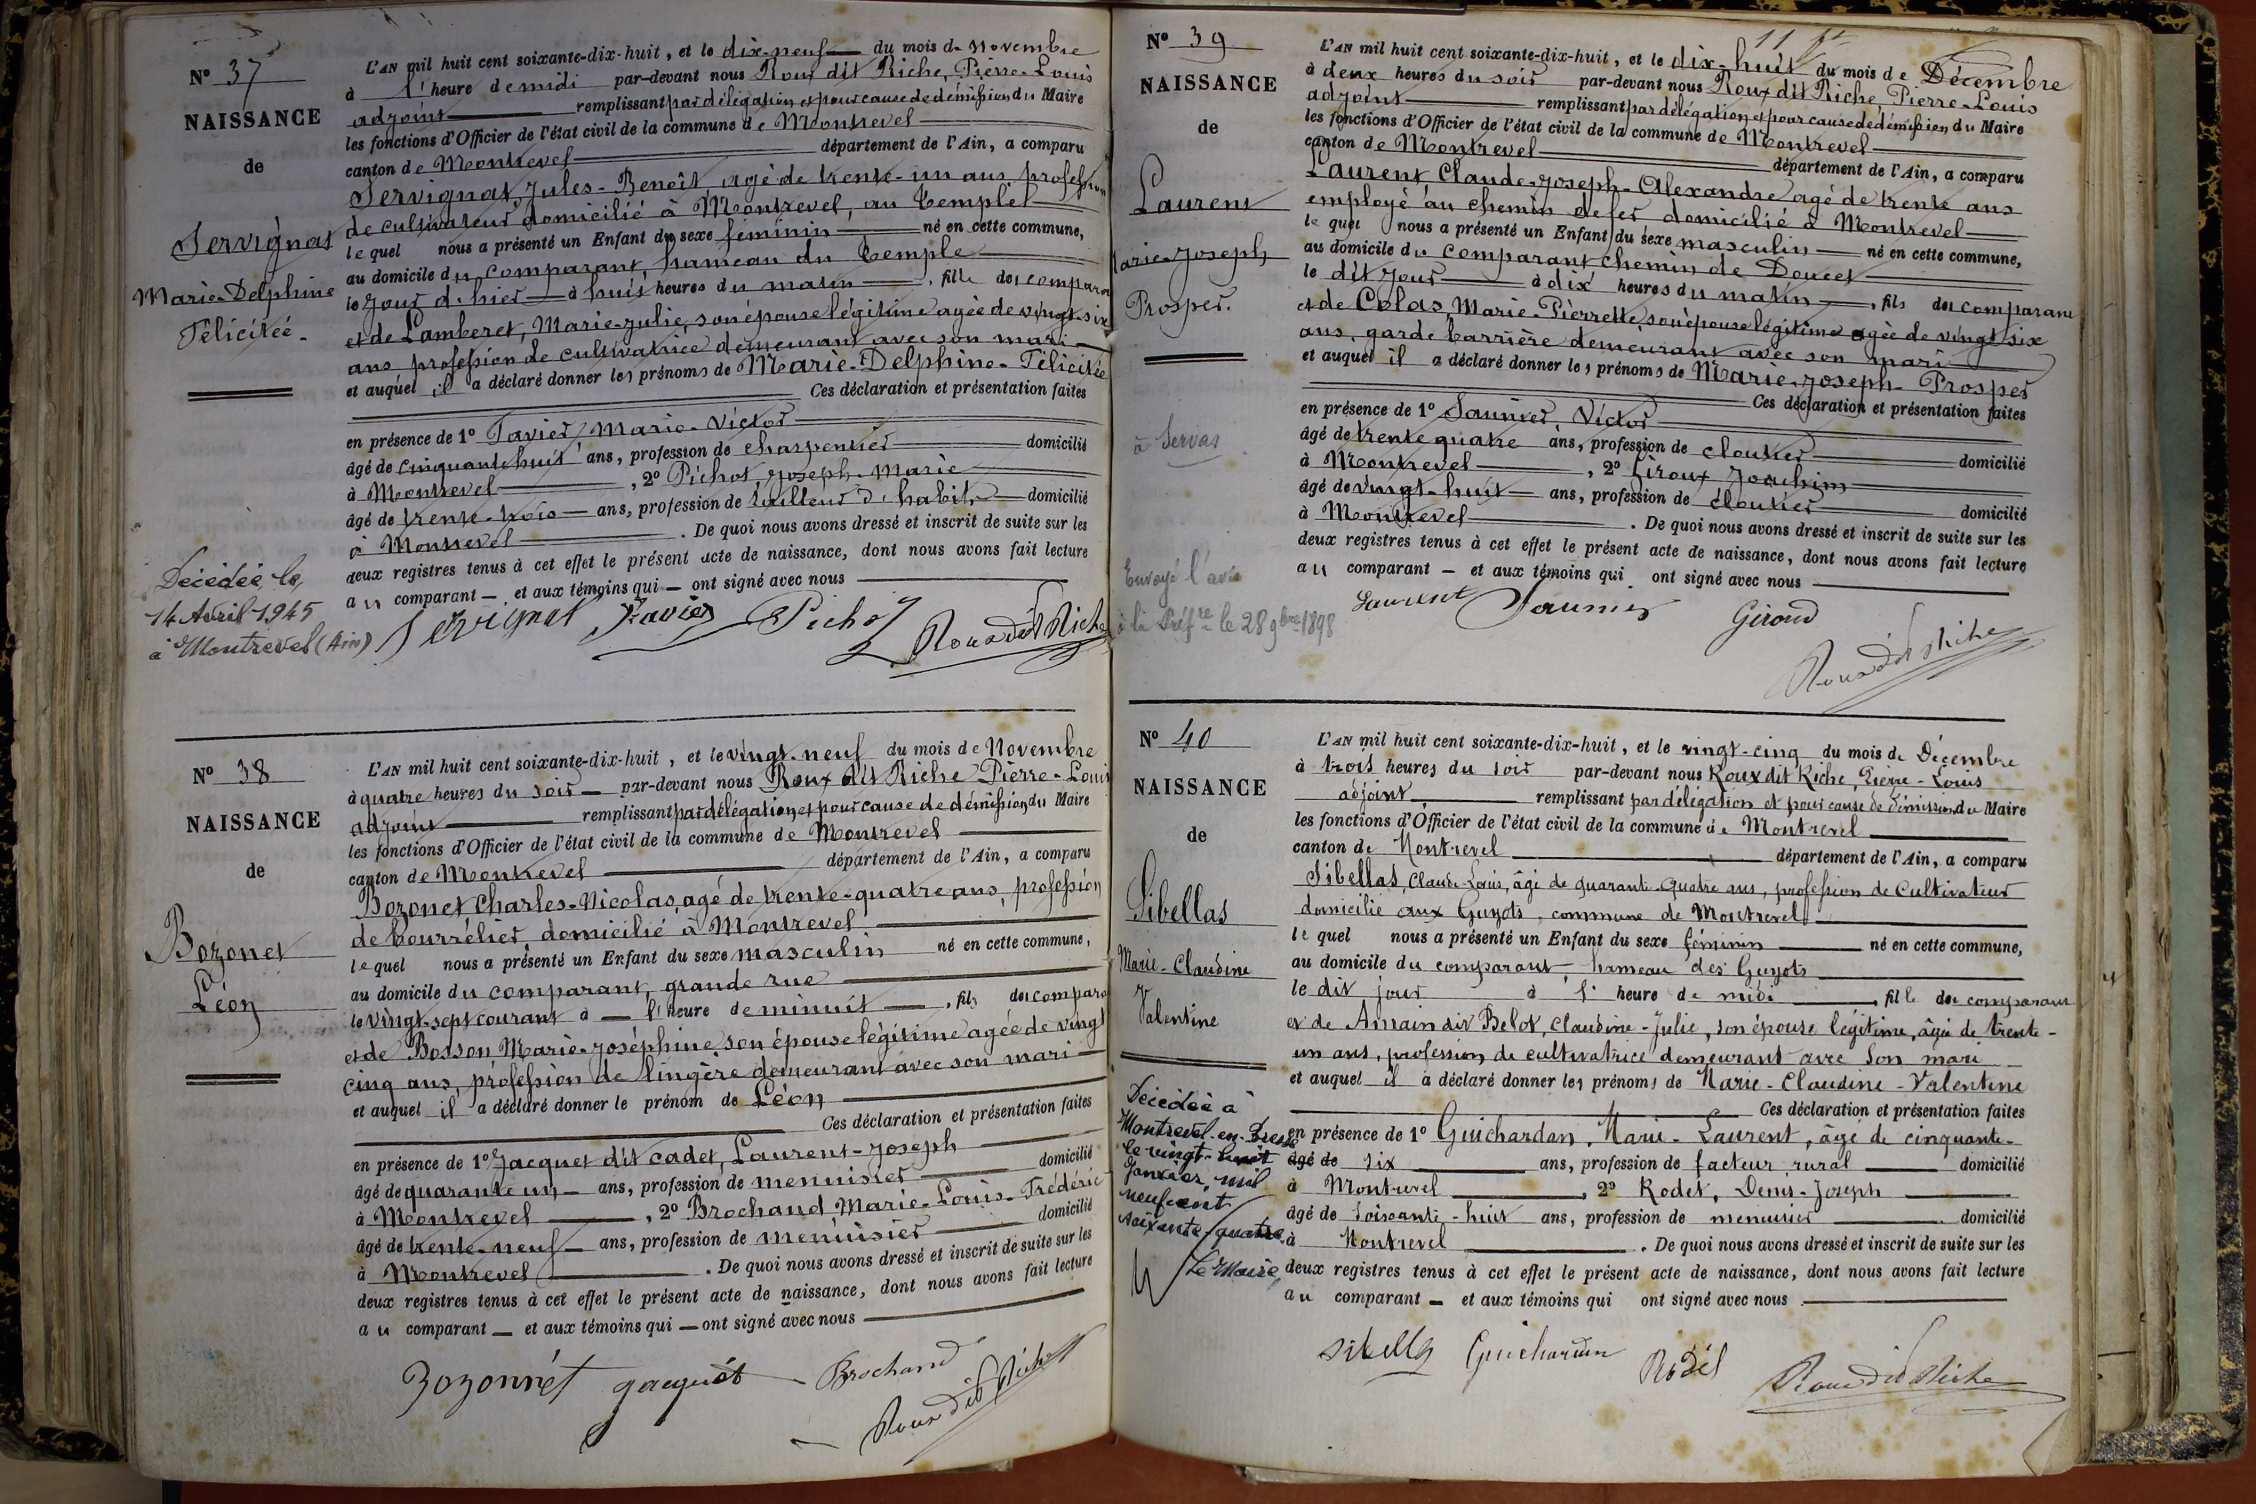 N° 37
NAISSANCE
de
Servignat
Marie-Delphine
Félicitée.
Décédée le
14 Avril 1945
à Montrevel (Ain)
L'AN mil huit cent soixante-dix-huit, et le dix-neuf du mois de novembre
à l'heure de midi par-devant nous Roux dit Riche, Pierre-Louis
adjoint remplissant par délégation et pour cause de démission du Maire
les fonctions d'Officier de l'état civil de la commune de Montrevel
canton de Montrevel département de l'Ain, a comparu
Servignat, Jules-Benoît, agé de trente-un ans, profession
de cultivateur domicilié à Montrevel, au Temple
lequel nous a présenté un Enfant du sexe féminin né en cette commune,
au domicile du comparant, hameau du Temple
le jour d'hier à huit heures du matin, fille du comparant
et de Lamberet, Marie-Julie, son épouse légitime agée de vingt-six
ans, profession de cultivatrice demeurant avec son mari
et auquel il a déclaré donner les prénoms de Marie-Delphine-Félicitée
Ces déclaration et présentation faites
en présence de 1° Favier, Marie-Victor
âgé de cinquante huit ans, profession de charpentier domicilié
à Montrevel, 2° Pichot, Joseph-Marie
âgé de trente-trois ans, profession de tailleur d'habits domicilié
à Montrevel. De quoi nous avons dressé et inscrit de suite sur les
deux registres tenus à cet effet le présent acte de naissance, dont nous avons fait lecture
au comparant et aux témoins qui ont signé avec nous
Servignat Favier Pichot Roux dit Riche
N° 38
NAISSANCE
de
Bozonet
Léon
L'AN mil huit cent soixante-dix-huit, et le vingt-neuf du mois de Novembre
à quatre heures du soir par-devant nous Roux dit Riche Pierre-Louis
adjoint remplissant par délégation et pour cause de démission du Maire
les fonctions d'Officier de l'état civil de la commune de Montrevel
canton de Montrevel département de l'Ain, a comparu
Bozonet Charles-Nicolas, agé de trente-quatre ans, profession
de bourrélier, domicilié à Montrevel
lequel nous a présenté un Enfant du sexe masculin né en cette commune,
au domicile du comparant, grande rue
le vingt-sept courant à l'heure de minuit, fils du comparant
et de Bosson Marie-Joséphine son épouse légitime agée de vingt
cinq ans, profession de lingère demeurant avec son mari
et auquel il a déclaré donner le prénom de Léon
Ces déclaration et présentation faites
en présence de 1° Jacquet dit cadet, Laurent-Joseph
âgé de quarante un ans, profession de menuisier domicilié
à Montrevel, 2° Brochand Marie-Louis-Frédéric
âgé de trente-neuf ans, profession de menuisier domicilié
à Montrevel. De quoi nous avons dressé et inscrit de suite sur les
deux registres tenus à cet effet le présent acte de naissance, dont nous avons fait lecture
au comparant et aux témoins qui ont signé avec nous
Bozonnét Jacquét Brochand
Roux dit Riche
N° 39
NAISSANCE
de
Laurent
Marie-Joseph
Prosper.
à Servas
Envoyé l'avis
à la Préfre le 28 9bre 1898
L'AN mil huit cent soixante-dix-huit, et le dix-huit du mois de Décembre
à deux heures du soir par-devant nous Roux dit Riche, Pierre-Louis
adjoint remplissant par délégation et pour cause de démission du Maire
les fonctions d'Officier de l'état civil de la commune de Montrevel
canton de Montrevel département de l'Ain, a comparu
Laurent, Claude-Joseph-Alexandre agé de trente ans
employé au chemin de fer domicilié à Montrevel
lequel nous a présenté un Enfant du sexe masculin né en cette commune,
au domicile du comparant chemin de Doucet
le dit jour à dix heures du matin, fils du comparant
et de Colas, Marie-Pierrette, son épouse légitime agée de vingt six
ans, garde barrière demeurant avec son mari
et auquel il a déclaré donner les prénoms de Marie-Joseph-Prosper
Ces déclaration et présentation faites
en présence de 1° Saunier, Victor
âgé de trente quatre ans, profession de cloutier domicilié
à Montrevel, 2° Giroux Joachim
âgé de vingt-huit ans, profession de cloutier domicilié
à Montrevel. De quoi nous avons dressé et inscrit de suite sur les
deux registres tenus à cet effet le présent acte de naissance, dont nous avons fait lecture
au comparant et aux témoins qui ont signé avec nous
Laurent Saunier Giroud
Roux dit Riche
N° 40
NAISSANCE
de
Sibellas
Marie-Claudine
Valentine
Décédée à
Montrevel-en-Bresse
le vingt-huit
janvier mil
neuf cent
soixante-quatre.
Le Maire,
L'AN mil huit cent soixante-dix-huit, et le vingt-cinq du mois de Décembre
à trois heures du soir par-devant nous Roux dit Riche, Pierre-Louis
adjoint remplissant par délégation et pour cause de démission du Maire
les fonctions d'Officier de l'état civil de la commune de Montrevel
canton de Montrevel département de l'Ain, a comparu
Sibellas, Claude-Louis, âgé de quarante-quatre ans, profession de cultivateur
domicilié aux Guyots, commune de Montrevel
lequel nous a présenté un Enfant du sexe féminin né en cette commune,
au domicile du comparant, hameau des Guyots
le dit jour à l'heure de midi, fille du comparant
et de Amain dit Belot, Claudine-Julie, son épouse légitime, âgée de trente-
un ans, profession de cultivatrice demeurant avec son mari
et auquel il a déclaré donner les prénoms de Marie-Claudine-Valentine
Ces déclaration et présentation faites
en présence de 1° Guichardan, Marie-Laurent, âgé de cinquante-
âgé de six ans, profession de facteur rural domicilié
à Montrevel, 2° Rodet, Denis-Joseph
âgé de soixante-huit ans, profession de menuisier domicilié
à Montrevel. De quoi nous avons dressé et inscrit de suite sur les
deux registres tenus à cet effet le présent acte de naissance, dont nous avons fait lecture
au comparant et aux témoins qui ont signé avec nous
Guichardan Rodét Roux dit Riche